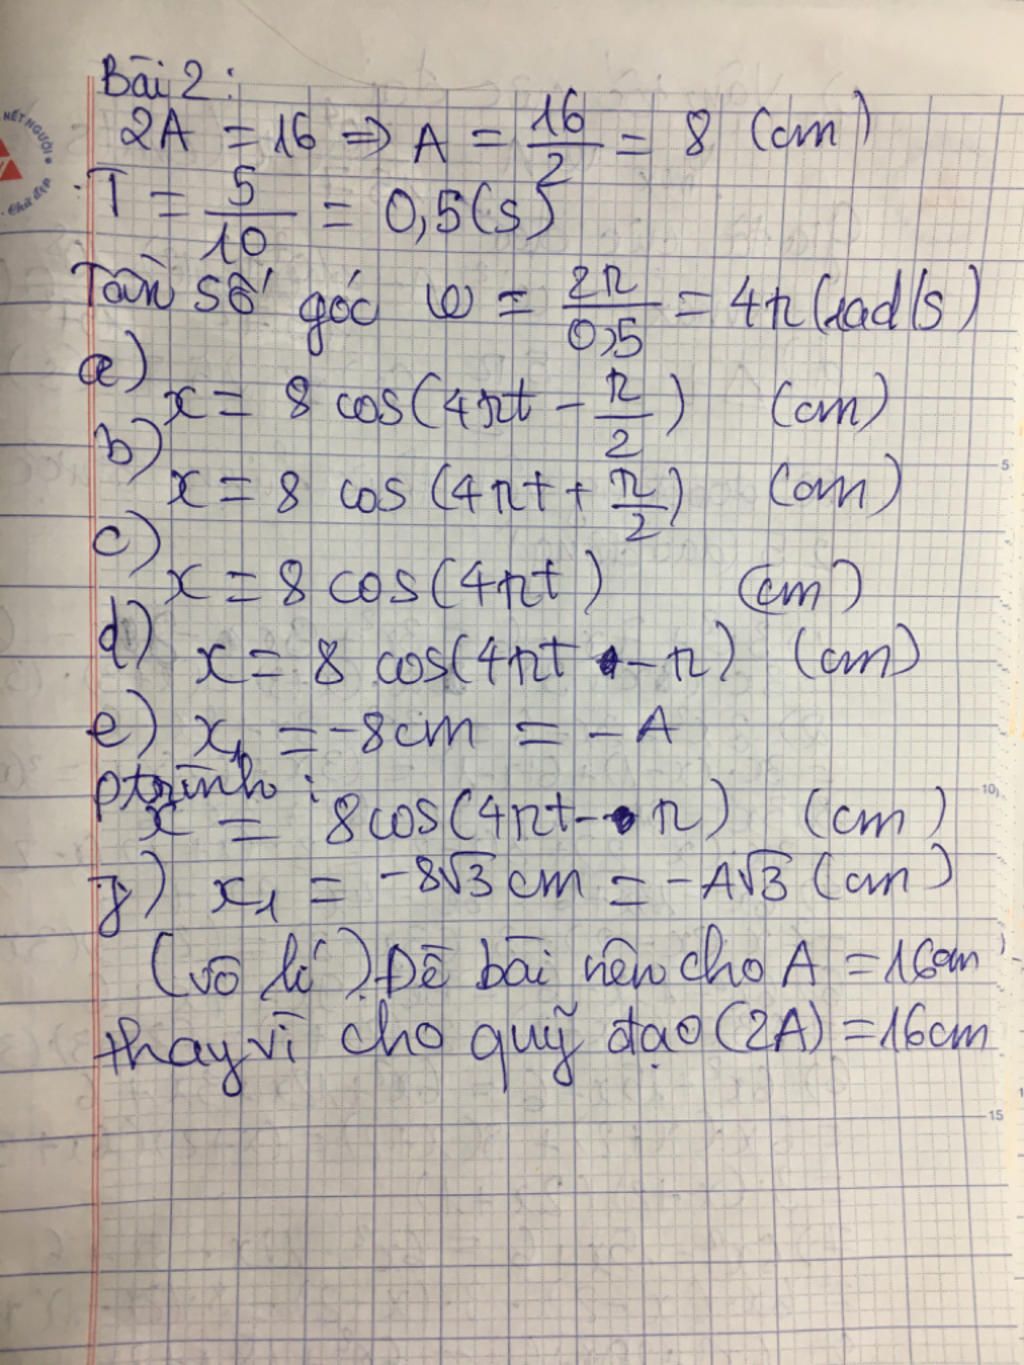 Bài 2:
2A = 16 => A = 16/2 = 8 (cm)
T = 5/10 = 0,5(s)
Tần số góc ω = 2π/0,5 = 4π(rad/s)
a)
x = 8 cos(4πt - π/2) (cm)
b)
x = 8 cos (4πt + π/2) (cm)
c)
x = 8 cos(4πt) (cm)
d)
x = 8 cos(4πt - π) (cm)
e) x₁ = -8cm = -A
ptrình:
x = 8cos(4πt - π) (cm)
g) x₁ = -8√3 cm = -A√3 (cm)
(vô lí). Đề bài nên cho A = 16cm
thay vì cho quỹ đạo (2A) = 16cm
NẾT NGƯỜI
Chữ đẹp
5
10
15